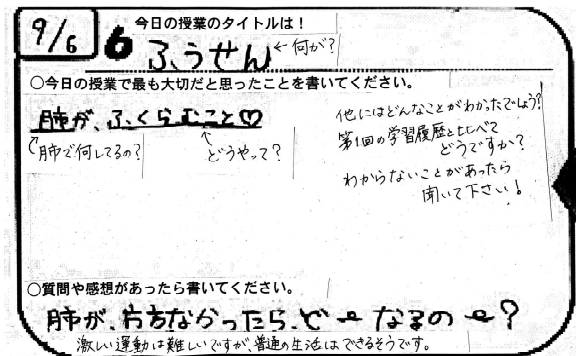 9/6
6
今日の授業のタイトルは！
ふうせん ←何が？
○今日の授業で最も大切だと思ったことを書いてください。
肺が、ふくらむこと♡
肺で何してるの？
どうやって？
他にはどんなことがわかったでしょう？
第1回の学習履歴と比べて
どうですか？
わからないことがあったら
聞いて下さい！
○質問や感想があったら書いてください。
肺が、片方なかったら、ど～なるの～？
激しい運動は難しいですが、普通の生活はできるそうです。